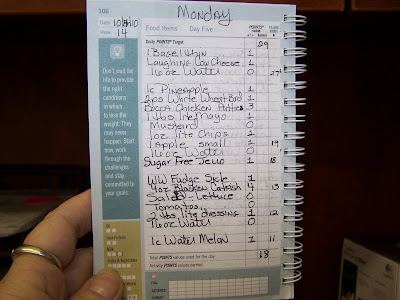 Monday
106
Date: 10/5/10
Food Items Day Five
POINTS®
Week 14
Daily POINTS® Target 29
1 Bagel thin 1
Laughing Cow Cheese 1
16 oz Water 0 27
1c Pineapple 1
2 pcs White Wheat Brd 1
Bocca Chicken Patties 3
1 tbs lite Mayo 1
Mustard 0
1oz lite Chips 2
1 Apple small 1 19
16 oz Water 0
Sugar Free Jello 1 18
WW Fudge Sycle 1
4oz Blacken Catfish 4 13
Salad - Lettuce 0
Tomatoes 0
2 tbs lite dressing 1 12
16oz Water 0
1c Water Melon 1 11
Total POINTS values used for the day 18
Activity POINTS values earned
Don't wait for
life to provide
the right
conditions
in which
to lose the
weight. They
may never
happen. Start
now, work
through the
challenges
and stay
committed to
your goals.